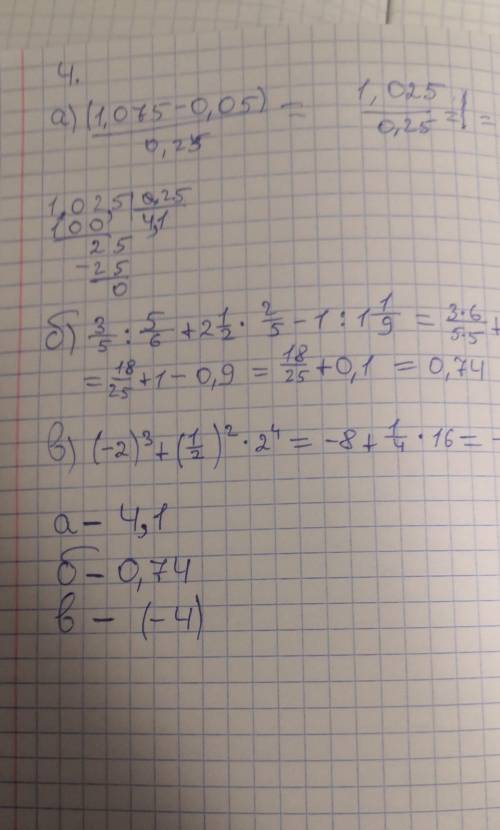 4.
а) (1,075 - 0,05) / 0,25 = 1,025 / 0,25 =
1,025 | 0,25
100, 4,1
25
-25
0
б) 3/5 : 5/6 + 2 1/2 · 2/5 - 1 : 1 1/9 = 3·6/5·5 +
= 18/25 + 1 - 0,9 = 18/25 + 0,1 = 0,74
в) (-2)³ + (1/2)² · 2⁴ = -8 + 1/4 · 16 = -
а - 4,1
б - 0,74
в - (-4)